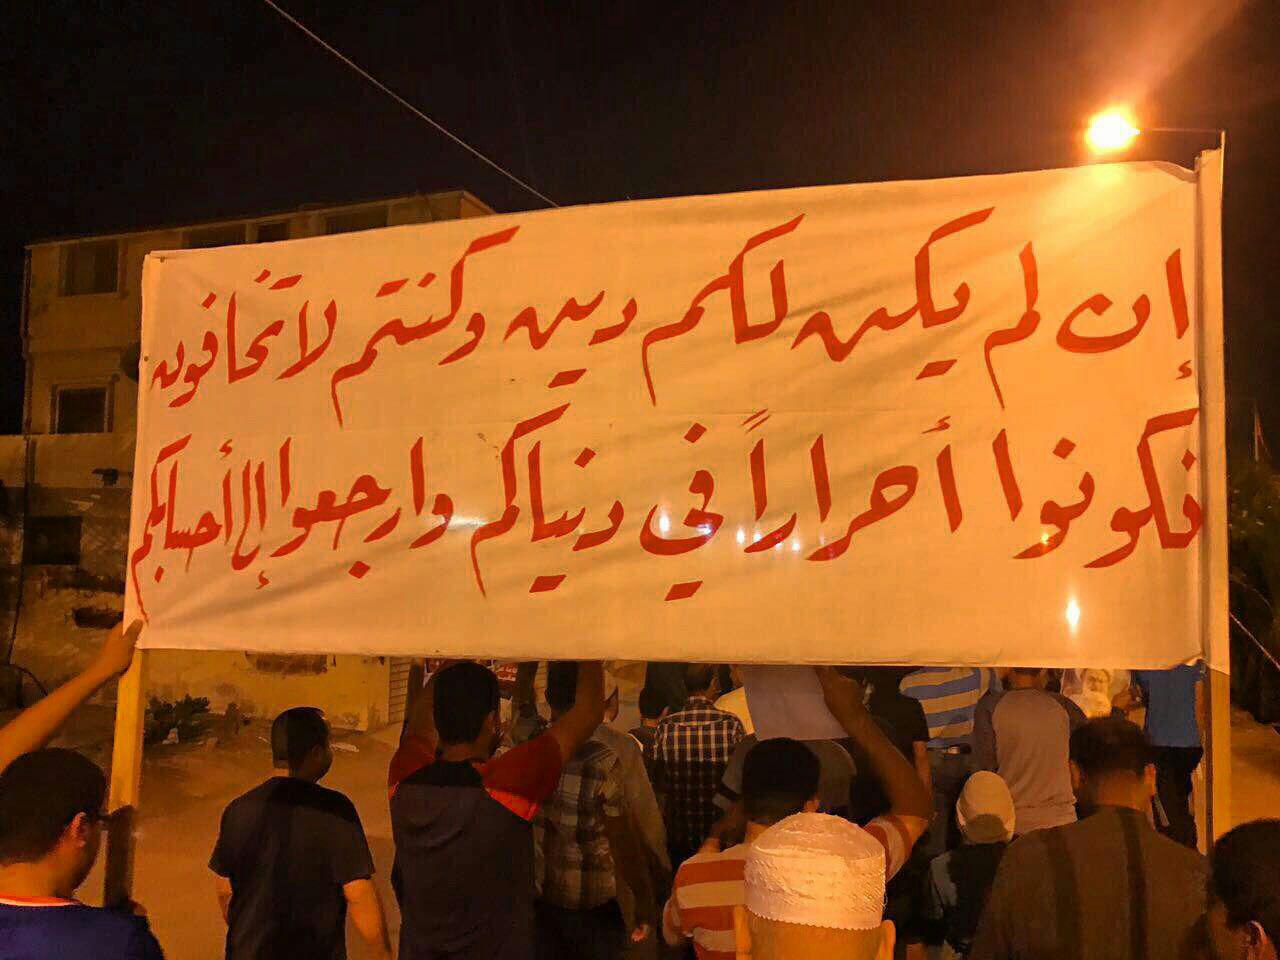 إن لم يكن لكم دين وكنتم لا تخافون
فكونوا أحراراً في دنياكم وارجعوا إلى أحسابكم